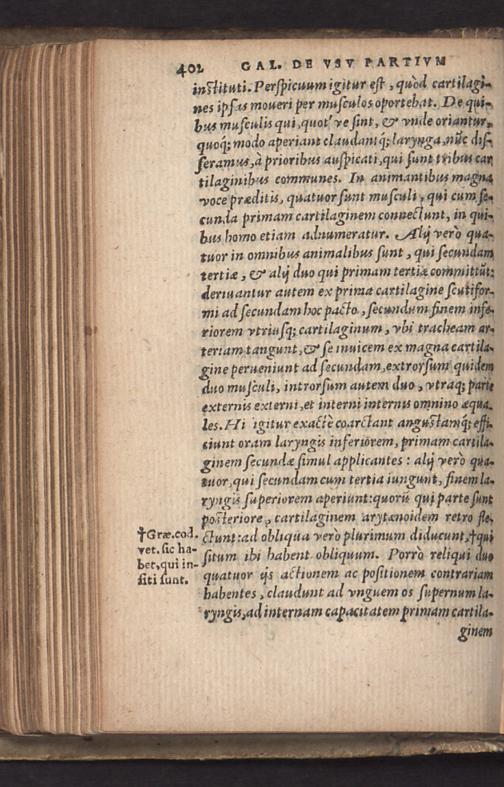 402 GAL. DE VSV PARTIVM
instituti. Perspicuum igitur est, quòd cartilagi-
nes ipsas moueri per musculos oportebat. De qui-
bus musculis qui, quot've sint, & vnde oriantur,
quoq; modo aperiant claudantq; larynga, nūc dis-
seramus, à prioribus auspicati, qui sunt tribus car
tilaginibus communes. In animantibus magna
voce præditis, quatuor sunt musculi, qui cum se-
cunda primam cartilaginem connectunt, in qui-
bus homo etiam adnumeratur. Alij verò qua-
tuor in omnibus animalibus sunt, qui secundam
tertiæ, & alij duo qui primam tertiæ committūt:
deriuantur autem ex prima cartilagine scutifor-
mi ad secundam hoc pacto, secundum finem infe-
riorem vtriusq; cartilaginum, vbi tracheam ar-
teriam tangunt, & se inuicem ex magna cartila-
gine perueniunt ad secundam, extrorsum quidem
duo musculi, introrsum autem duo, vtraq; parte
externis externi, et interni internis omnino æqua-
les. Hi igitur exactè coarctant angustamq; effi-
ciunt oram laryngis inferiorem, primam cartila-
ginem secundæ simul applicantes: alij verò qua-
tuor, qui secundam cum tertia iungunt, finem la-
ryngis superiorem aperiunt: quorū qui parte sunt
posteriore, cartilaginem arytænoidem retro fle-
†Græ.cod. ctunt: ad obliqua verò plurimum diducunt, †qui
vet. sic ha- situm ibi habent obliquum. Porrò reliqui duo
bet, qui in- quatuor ijs actionem ac positionem contrariam
siti sunt. habentes, claudunt ad vnguem os supernum la-
ryngis, ad internam capacitatem primam cartila-
ginem